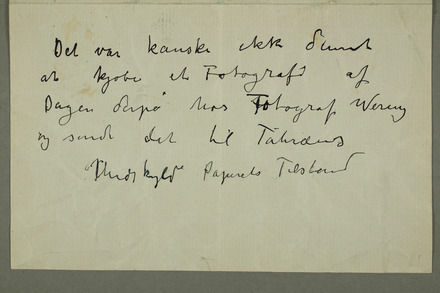 Det var kanske ikke dumt
at kjøbe et Fotografi af
Dagen derpå hos Fotograf Wering
og sende det til
"Undskyld" Papirets Tilstand